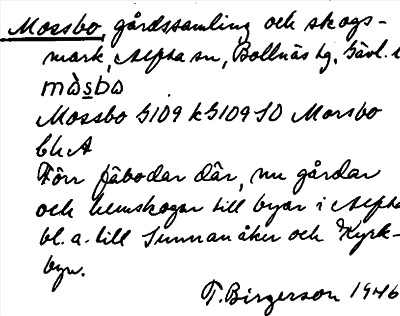 Mossbo, gårdssamling och skogs-
mark, Alfta sn, Bollnäs tg, Gävl. l
mɷ̀sbo
Mossbo G109 kG109 SO Morsbo
bl. A
Förr fäbodar där, nu gårdar
och hemskogar till byar i Alfta
bl.a. till Sunnanåker och Kyrk-
byn.
T. Birgerson 1946